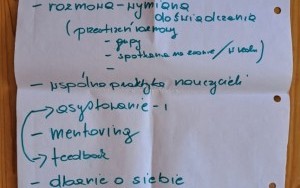 - rozmowa - wymiana
doświadczenia
(przestrzeń rozmowy
- grupy
- spotkania na
-
- wspólna praktyka nauczycieli
asystowanie - 1
- mentoring
feedback
- dbanie o siebie